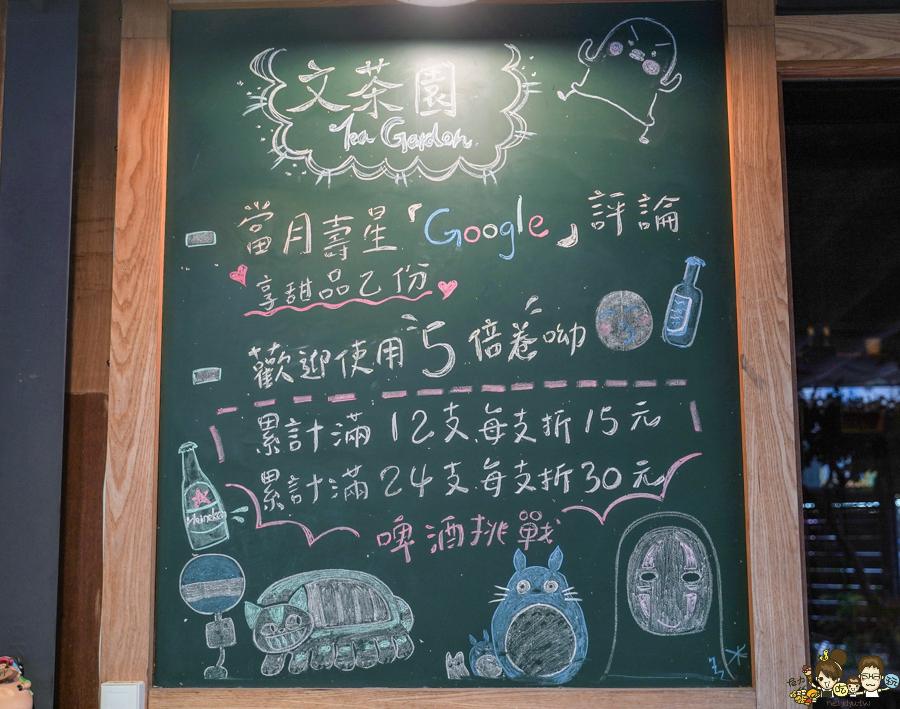 文茶園
Tea Garden
當月壽星「Google」評論
享甜品乙份
歡迎使用5倍卷呦
累計滿12支每支折15元
累計滿24支每支折30元
啤酒挑戰
Heineken